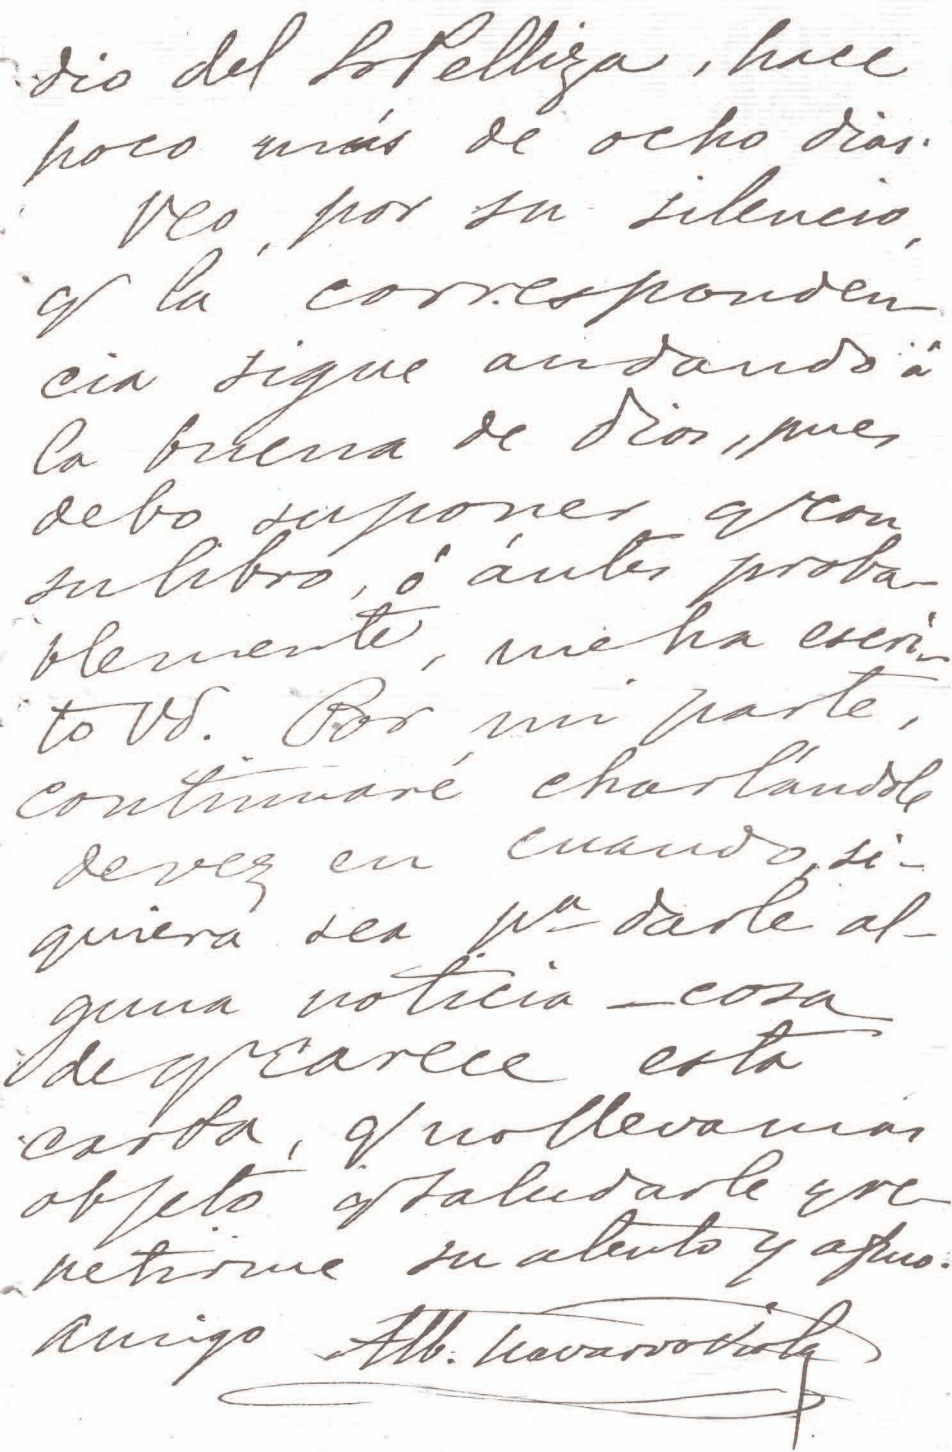 dio del Sr Pelliza, hace
poco más de ocho dias.
Veo, por su silencio,
q la corresponden-
cia sigue andando á
la buena de Dios, pues
debo suponer q con
su libro, ó ántes proba-
blemente, me ha escri-
to Vd. Por mi parte,
continuaré charlándole
de vez en cuando, si-
quiera sea pa darle al-
guna noticia – cosa
de q carece esta
carta, q no lleva mas
objeto q saludarle y re-
petirme su atento y afmo.
amigo Alb. Navarro Viola